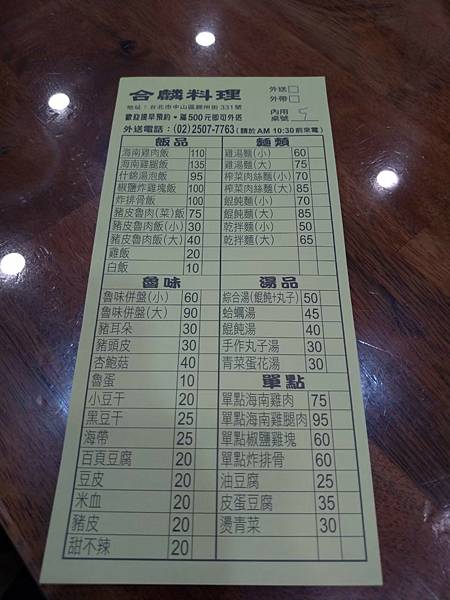 合麟料理
外送□
外帶□
地址：台北市中山區錦州街331號
歡迎提早預約•滿500元即可外送
內用
桌號 5
外送電話：(02) 2507-7763 (請於AM 10:30前來電)
飯品
海南雞肉飯 110
海南雞腿飯 135
什錦湯泡飯 95
椒鹽炸雞塊飯 100
炸排骨飯 100
豬皮魯肉(菜)飯 75
豬皮魯肉飯(小) 30
豬皮魯肉飯(大) 40
雞飯 20
白飯 10
麵類
雞湯麵(小) 60
雞湯麵(大) 75
榨菜肉絲麵(小) 70
榨菜肉絲麵(大) 85
餛飩麵(小) 70
餛飩麵(大) 85
乾拌麵(小) 50
乾拌麵(大) 65
魯味
魯味併盤(小) 60
魯味併盤(大) 90
豬耳朵 30
豬頭皮 30
杏鮑菇 40
魯蛋 10
小豆干 20
黑豆干 25
海帶 25
百頁豆腐 20
豆皮 20
米血 20
豬皮 20
甜不辣 20
湯品
綜合湯(餛飩+丸子) 50
蛤蠣湯 45
餛飩湯 40
手作丸子湯 30
青菜蛋花湯 30
單點
單點海南雞肉 75
單點海南雞腿肉 95
單點椒鹽雞塊 60
單點炸排骨 60
油豆腐 25
皮蛋豆腐 35
燙青菜 30